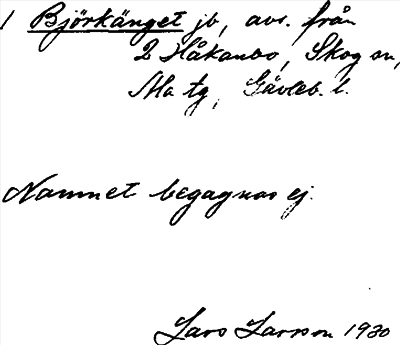 1 Björkänget jb, avs. från
2 Håkanbo, Skog sn,
Ala tg, Gävleb. l.
Namnet begagnas ej.
Lars Larsson 1930